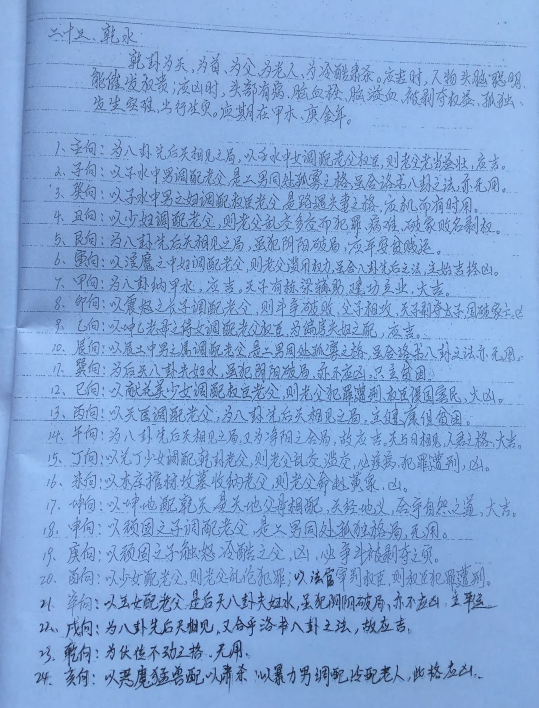 二十五、乾水
乾卦为天、为首、为父、为老人、为冷酷肃杀。应吉时，人物头脑聪明，
能催发权贵；凶时，头部有病，脑血栓、脑溢血、被剥夺权益、孤独、
发生灾难，出行生灾。应期在甲水、庚金年。
1、壬向：为八卦先后天相见之局，以壬水中女调配老父权臣，则老父老当益壮，应吉。
2、子向：以子水中男调配老父，是二男同处孤寡之格，虽合洛书八卦之法，亦无用。
3、癸向：以子水中男之妇调配权臣老父，是路遇夫妻之格，应机而有时用。
4、丑向：以少妇调配老父，则老父乱交多交而犯罪、病难、破家败名剥权。
5、艮向：为八卦先后天相见之局，虽犯阴阳破局，应平安贫贱运。
6、寅向：以淫魔之中女调配老父，则老父滥用权力，虽合八卦先后之法，主始吉终凶。
7、甲向：为八卦纳甲水，应吉，天子有栋梁辅助，建功立业，大吉。
8、卯向：以震怒之长子调配老父，则斗争破败，父子相攻，天子剥夺太子，国破家亡，凶
9、乙向：以坤乙老母之侍女调配老父权臣，为偏房夫妇之配，应吉。
10、辰向：以辰土中男之属调配老父，是二男同处孤寡之格，虽合洛书八卦之法亦无用。
11、巽向：为后天八卦夫妇水，虽犯阴阳破局，亦不应凶，只主贫困。
12、巳向：以献花美少女调配权臣老父，则老父犯罪遭刑，权臣误国害民，大凶。
13、丙向：以天臣调配老父，为八卦先后天相见之局，主健康但贫困。
14、午向：为八卦先后天相见之局，又为净阳之合局，故应吉，天日相见，人君之格，大吉。
15、丁向：以兑丁少女调配乾卦老父，则老父乱交、滥交，必获病、犯罪遭刑，凶。
16、未向：以木库棺材坟墓收纳老父，则老父命赴黄泉，凶。
17、坤向：以坤地配乾天，是天地父母相配，天经地义，合乎自然之道，大吉。
18、申向：以顽固之子调配老父，是二男同处孤独格局，无用。
19、庚向：以顽固之子触怒冷酷之父，凶，必争斗被剥夺之灾。
20、酉向：以少女配老父，则老父乱伦犯罪；以法官审判权臣，则权臣犯罪遭刑。
21、辛向：以玉女配老父，是后天八卦夫妇水，虽犯阴阳破局，亦不应凶，主平运
22、戌向：为八卦先后天相见，又合乎洛书八卦之法，故应吉。
23、乾向：为伏位不动之格，无用。
24、亥向：以恶魔猛兽配以肃杀，以暴力男调配冷配老人，此格应凶。